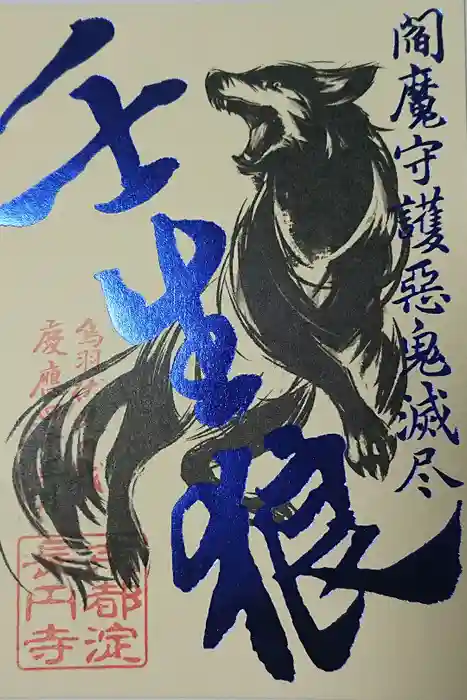 閻魔守護惡鬼滅尽
壬生狼
鳥羽伏
慶應四
京都淀
長円寺